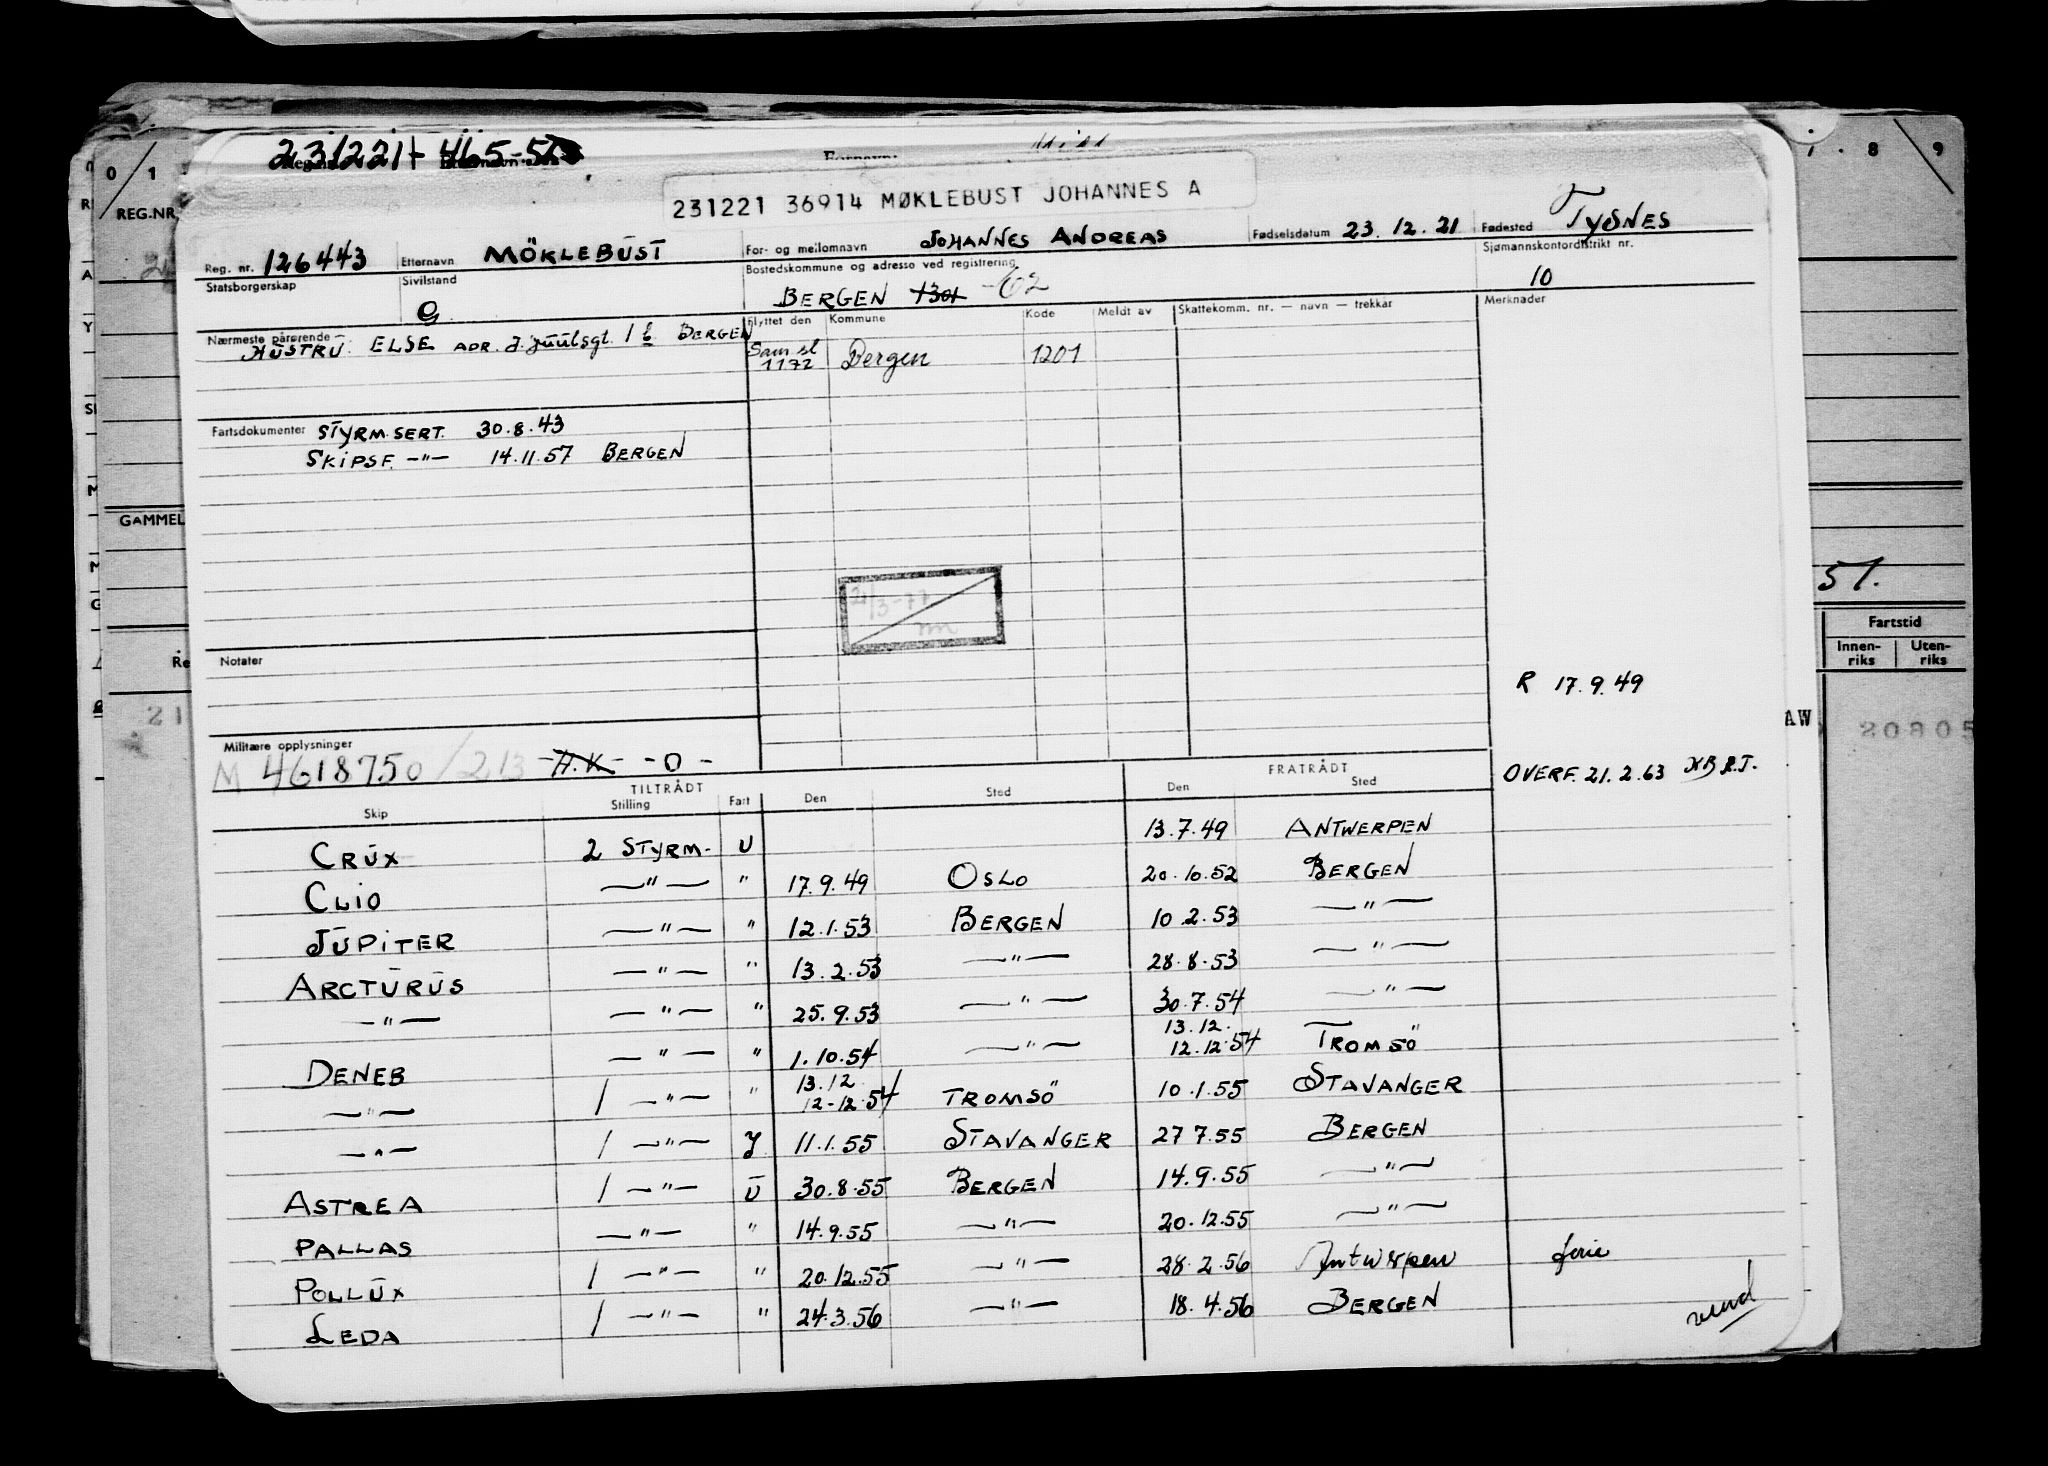 231221 36914 MØKLEBUST JOHANNES A
Reg. nr. 126443 Etternavn MÖKLEBUST For- og mellomnavn JOHANNES ANDREAS Fødselsdatum 23.12.21 Fødested TYSNES
Statsborgerskap Sivilstand G Bostedskommune og adresse ved registrering BERGEN 1301 -62 Sjømannskontordistrikt nr. 10
Nærmeste pårørende HUSTRU ELSE ADR. J. Juulsgt. 1 b BERGEN
Flyttet den Kommune Kode Meldt av Skattekomm. nr. — navn — trekkår Merknader
Sam sl 1172 Bergen 1201
Fartsdokumenter STYRM.SERT. 30.8.43
SKIPSF. -"- 14.11.57 BERGEN
21/3-77
Notater
R 17.9.49
Militære opplysninger
M 4618750/213 H.K. -O-
OVERF. 21.2.63
TILTRÅDT FRATRÅDT
Skip Stilling Fart Den Sted Den Sted
CRUX 2 STYRM. U 13.7.49 ANTWERPEN
CLIO -"- " 17.9.49 OSLO 20.10.52 BERGEN
JUPITER -"- " 12.1.53 BERGEN 10.2.53 -"-
ARCTURUS -"- " 13.2.53 -"- 28.8.53 -"-
-"- -"- " 25.9.53 -"- 30.7.54 -"-
DENEB -"- " 1.10.54 -"- 13.12. 12.12.54 TROMSÖ
-"- 1 -"- " 13.12 12-12.54 TROMSÖ 10.1.55 STAVANGER
-"- 1 -"- J 11.1.55 STAVANGER 27.7.55 BERGEN
ASTREA 1 -"- U 30.8.55 BERGEN 14.9.55 -"-
PALLAS -"- " 14.9.55 -"- 20.12.55 -"-
POLLUX 1 -"- " 20.12.55 -"- 28.2.56 Antwerpen ferie
LEDA 1 -"- " 24.3.56 -"- 18.4.56 BERGEN
vend
0 1
REG.NR
GAMMEL
8 9
51.
Fartstid
Innen-riks Uten-riks
AW 20805